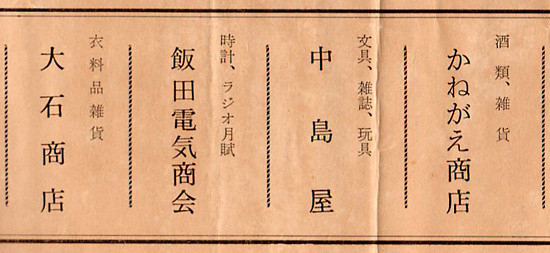 酒類、雑貨
かねがえ商店
文具、雑誌、玩具
中島屋
時計、ラジオ月賦
飯田電気商会
衣料品雑貨
大石商店